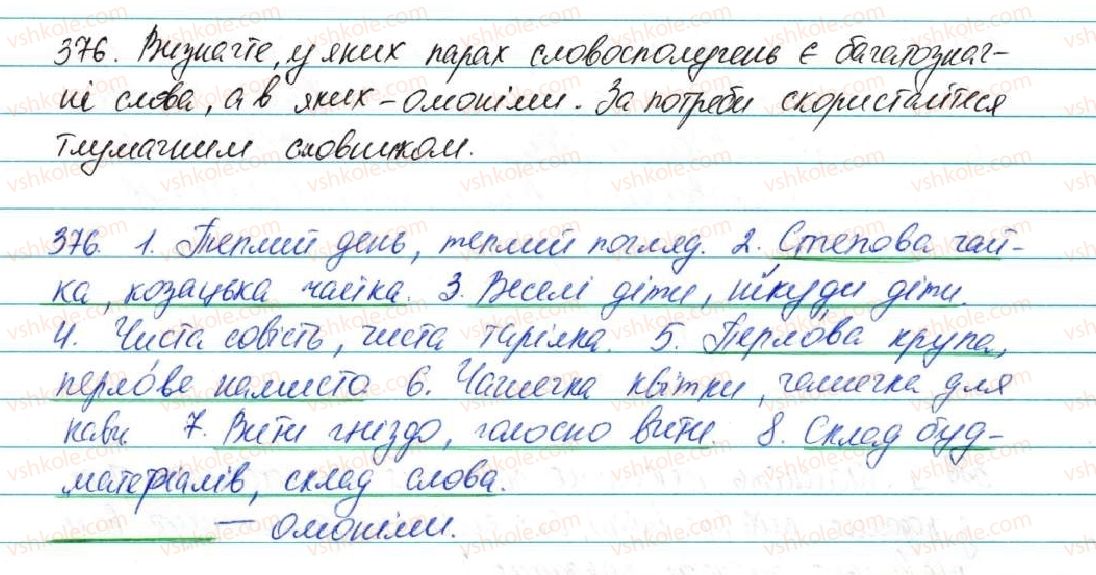 376. Визначте, у яких парах словосполучень є багатознач-
ні слова, а в яких - омоніми. За потреби скористайтеся
тлумачним словником.
376. 1. Теплий день, теплий погляд. 2. Степова чай-
ка, козацька чайка. 3. Веселі діти, нікуди діти.
4. Чиста совість, чиста тарілка. 5. Перлова крупа,
перлове намисто 6. Чашечка квітки, чашечка для
кави 7. Вити гніздо, голосно вити. 8. Склад буд-
матеріалів, склад слова.
— омоніми.